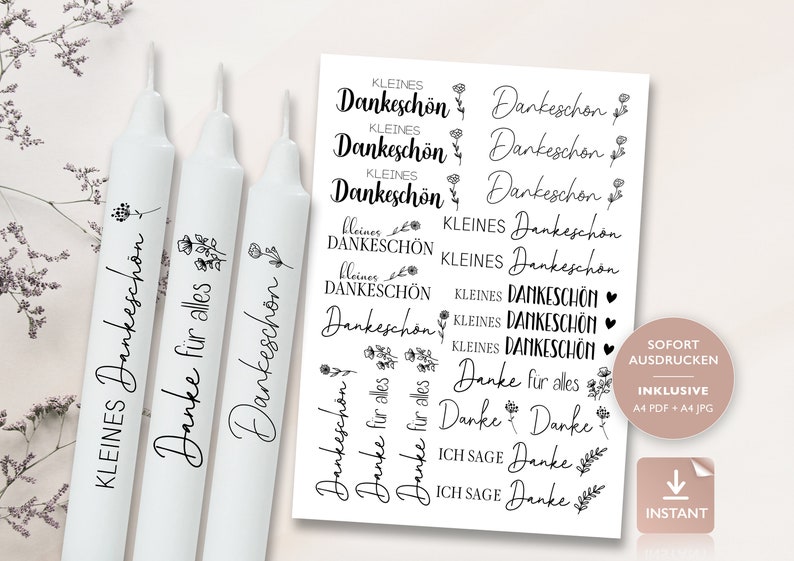 KLEINES Dankeschön
Danke für alles
Dankeschön
KLEINES
Dankeschön
KLEINES
Dankeschön
KLEINES
Dankeschön
kleines
DANKESCHÖN
kleines
DANKESCHÖN
Dankeschön
Dankeschön
Danke für alles
Danke für alles
Dankeschön
Dankeschön
Dankeschön
KLEINES Dankeschön
KLEINES Dankeschön
KLEINES DANKESCHÖN
KLEINES DANKESCHÖN
KLEINES DANKESCHÖN
Danke für alles
Danke Danke
ICH SAGE Danke
ICH SAGE Danke
SOFORT
AUSDRUCKEN
INKLUSIVE
A4 PDF + A4 JPG
INSTANT